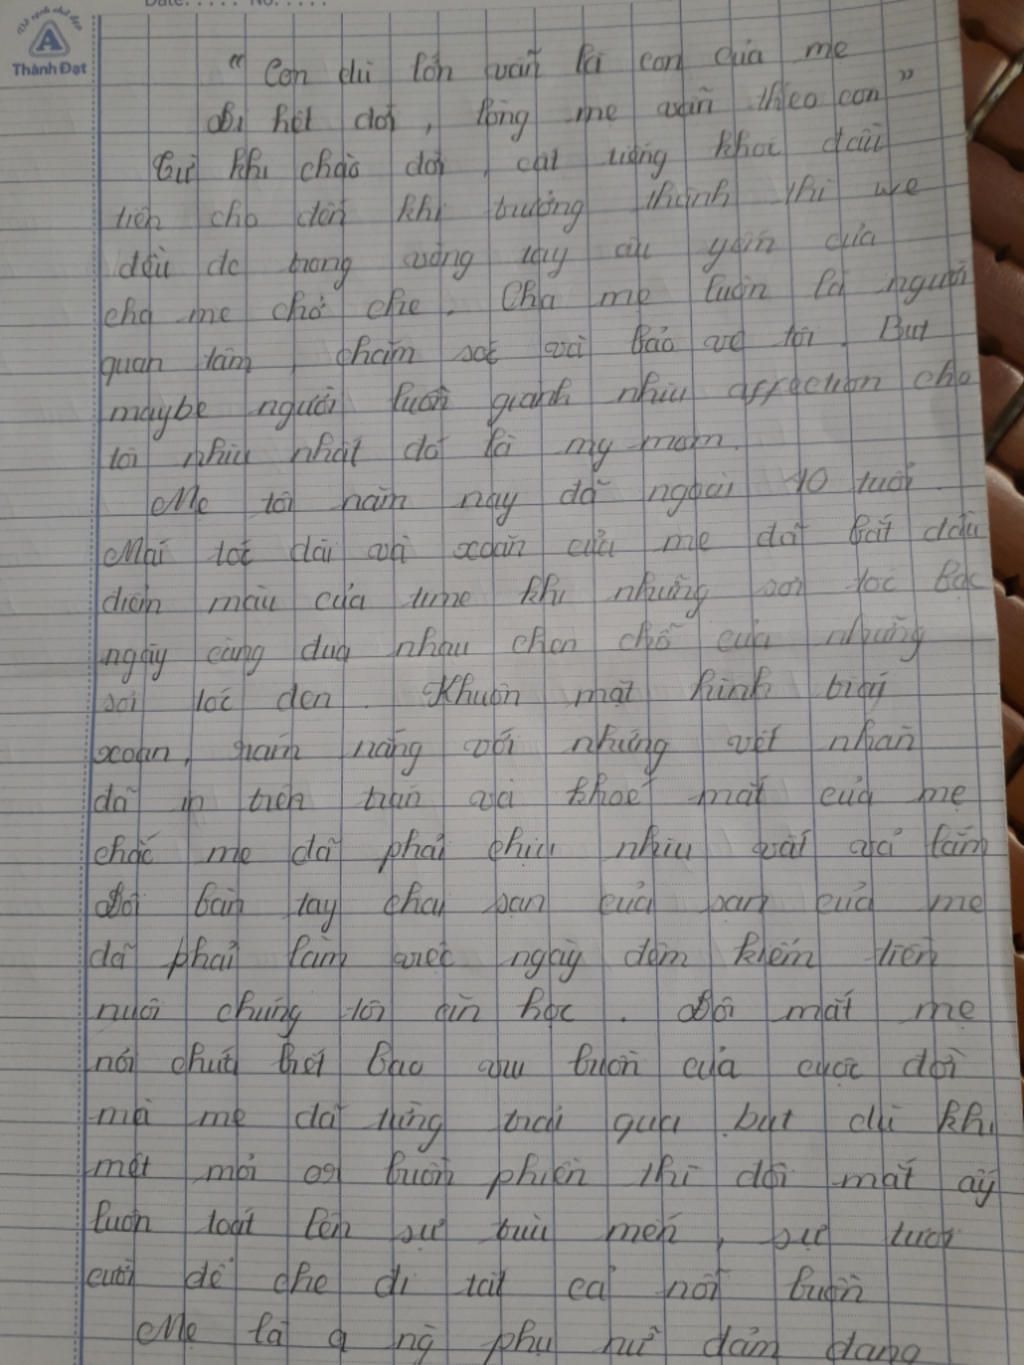 Date: . . . . . No: . . . . .
Vở sạch chữ đẹp
Thành Đạt
" Con dù lớn vẫn là con của mẹ
Đi hết đời , lòng mẹ vẫn theo con "
Từ khi chào đời , cất tiếng khóc đầu
tiên cho đến khi trưởng thành thì we
đều đc trong vòng tay âu yếm của
cha mẹ chở che . Cha mẹ luôn là người
quan tâm , chăm sóc và bảo vệ tôi . But
maybe người luôn giành nhìu affection cho
tôi nhìu nhất đó là my mom .
Mẹ tôi năm nay đã ngoài 40 tuổi .
Mái tóc dài và xoăn của mẹ đã bắt đầu
điểm màu của time khi những sợi tóc bạc
ngày càng đua nhau chen chỗ của những
sợi tóc đen . Khuôn mặt hình trái
xoan , nám nắng với những vết nhăn
đã in trên trán và khoé mắt của mẹ
chắc mẹ đã phải chịu nhìu vất vả lắm
Đôi bàn tay chai sạn của sạn của mẹ
đã phải làm việc ngày đêm kiếm tiền
nuôi chúng tôi ăn học . Đôi mắt mẹ
nói chút hết bao ưu buồn của cuộc đời
mà mẹ đã từng trải qua but dù khi
mệt mỏi or buồn phiền thì đôi mắt ấy
luôn toát lên sự trìu mến , sự tươi
cười để che đi tất cả nỗi buồn
Mẹ là a ng phụ nữ đảm đang